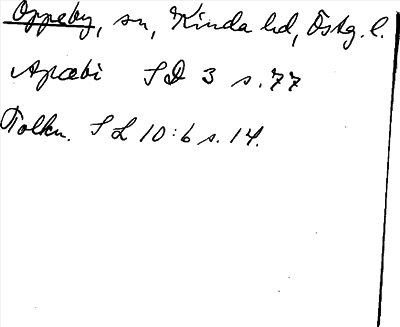 Oppeby, sn, Kinda hd, Östg. l.
Apæbi SD 3 s. 77
Tolkn. SL 10:6 s. 14.